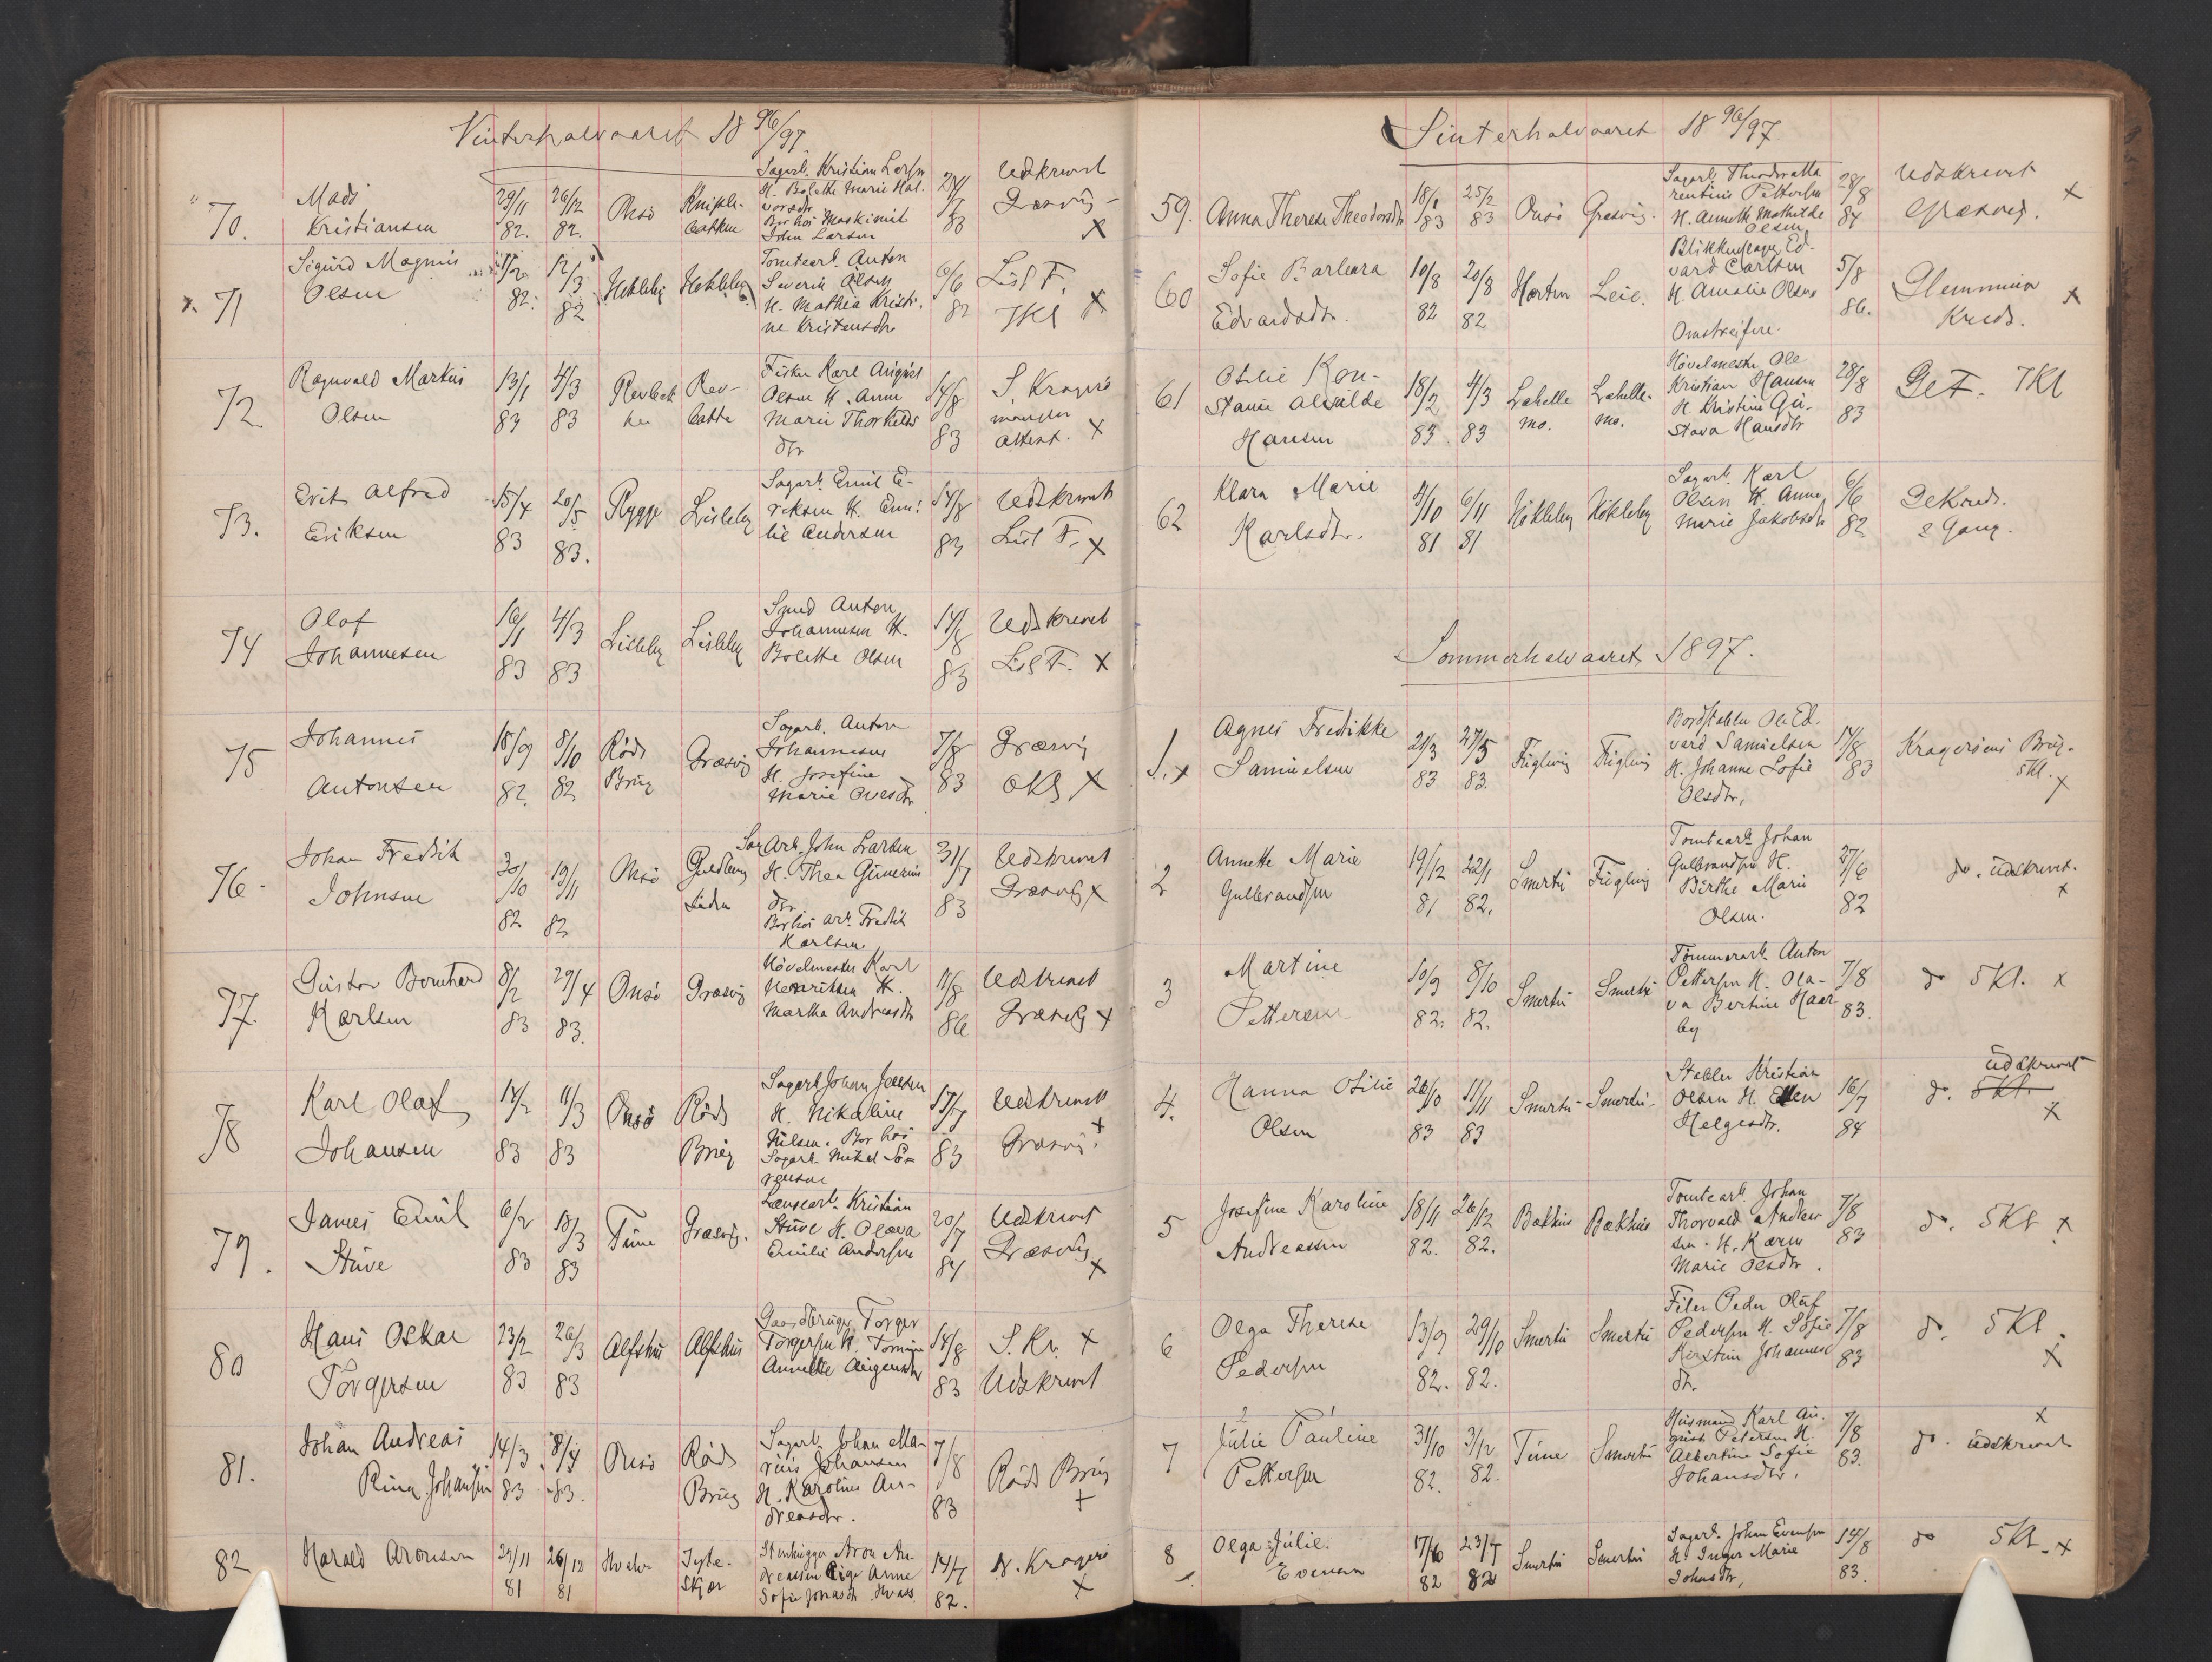 Vinterhalvaaret 18 96/97.
70.
Mads
Kristiansen
29/11 82.
26/12 82.
Onsö
Sagarb. Kristian Larsen
H. Bolette Marie Hal-
vorsdtr.
Bor hos Maskinist
John Larsen
83
Udskrevet
Græsvig
X
71
Sigurd Magnus
Olsen
82.
12/3 82
Hökleby
Hökleby
Tomtearb. Anton
Severin Olsen
H. Mathea Kristi-
ne Kristensdtr.
6/6 82
Lisl F.
7Kl X
72.
Ragnvald Markus
Olsen
13/1 83
4/3 83
Rev-
bakke
Fisker Karl August
Olsen H. Anne
Marie Thorkilds
dtr
14/8 83
S. Kragerö
attest. X
73.
Erik Alfred
Eriksen
15/4 83
20/5 83.
Rygge
Lisleby
Sagarb. Emil E-
riksen H. Emi-
lie Andersen
14/8 83
Udskrevet
Lisl F. X
74
Olaf
Johannesen
16/1 83
4/3 83
Lisleby
Lisleby
Smed Anton
Johannesen H.
Bolette Olsen
14/8 83
Udskrevet
Lisl F. X
75
Johannes
Antonsen
18/9 82.
8/10 82
Röds
Brug
Græsvig
Sagarb. Anton
Johannesen
H. Josefine
Marie Olesdtr
7/8 83
Græsvig
6Kl X
76.
Johan Fredrik
Johnsen
30/10 82
19/11 82
Onsö
Sagarb. John Larsen
H. Thea Gunerius
dtr.
Bor hos arb. Fredrik
Karlsen
31/7 83
Udskrevet
Græsvig X
77.
Gustav Bernhard
Karlsen
8/2 83
29/4 83.
Onsö
Græsvig
Hövelmester Karl
Henriksen H.
Martha Andreasdtr
11/8 86
Udskrevet
Græsvig X
78
Karl Olaf
Johansen
14/2 83
11/3 83
Onsö
Röds
Brug
Sagarb Johan Jensen
H. Nikoline
Nilsen. Bor hos
Sagarb. Mikal Sö-
rensen
17/7 83
Udskrevet
Græsvig. X
79.
James Emil
Stuve
6/2 83
18/3 83
Tune
Græsvig.
Lænsearb. Kristian
Stuve H. Olava
Emilie Andersen
20/7 84
Udskrevet
Græsvig
X
80
Hans Oskar
Torgersen
23/2 83
26/3 83
Alfshus
Alfshus
Gaardbruger Torger
Torgersen H. Tomine
Annette Augensdtr
14/8 83
S. Kr. X
Udskrevet
81.
Johan Andreas
Johansen
14/3 83
8/4 83.
Onsö
Röds
Brug
Sagarb. Johan Ma-
rius Johansen
H. Karoline An-
dreasdtr.
7/8 83
Röds Brug
X
82
Harald Aronsen
29/11 81
26/12 81
Hvaler
Tyte-
skjær
Stenhugger Aron An-
dreassen Pige Anne
Sofie Jonasdtr. Hvass.
14/7 82.
N. Kragerö
X
Vinterhalvaaret 18 96/97.
59.
Anna Therese Theodorsdtr
18/1 83
25/2 83
Onsö
Græsvig.
Sagarb Theodor
rentius Pettersen
H. Annette Mathilde
Olsen
28/8 84
Udskrevet
Græsvig. X
60
Sofie Barbara
Edvardsdtr.
10/8 82
20/8 82
Horten
Leie.
Blikkenslager Ed-
vard Carlsen
H. Amalie Olsen
Omstreifere.
5/8 86.
Glemminge
Kreds. X
61
Otilie Kon-
stance Alvilde
Hansen
18/2 83
4/3 83
Lahelle
mo.
Lahelle-
mo.
Hövelmester Ole
Kristian Hansen
H. Kristine Gu-
stava Hansdtr
28/8 83
Gl F. 7Kl
62
Klara Marie
Karlsdtr.
4/10 81
6/11 81
Hökleby
Hökleby
Sagarb. Karl
Olsen H. Anne
Marie Jakobsdtr
6/6 82
Gl Kreds.
2 Gang.
Sommerhalvaaret 1897.
1. x
Agnes Fredrikke
Samuelsen
21/3 83
27/5 83.
Fuglevig
Fuglevig
Bordstabler Ole Ed-
vard Samuelsen
H. Johanne Sofie
Olsdtr.
14/8 83
Krageröens Brug-
5Kl. X
2
Annette Marie
Gulbrandsen
19/12 81
22/1 82.
Smertu
Fuglevig
Tomtearb. Johan
Gulbrandsen H.
Birthe Marie
Olsen.
27/6 82
do. udskrevet.
x
3
Martine
Pettersen
10/9 82.
8/10 82.
Smertu
Smertu
Tömmerarb. Anton
Pettersen H. Ola-
va Bertine Haar
by
7/8 83.
do 5Kl. x
4.
Hanna Otilie
Olsen
26/10 83
11/11 83
Smertu
Smertu
Stabler Kristian
Olsen H. Ellen
Helgesdtr.
16/7 84
udskrevet
do. 5Kl.
X
5
Josefine Karoline
Andreassen
18/11 82.
26/12 82.
Bakkus
Bakkus
Tomtearb. Johan
Thorvald Andreas
sen. H. Karen
Marie Olsdtr.
7/8 83
do. 5Kl x
6
Olga Therese
Pedersen
13/9 82.
29/10 82.
Smertu
Smertu
Filer Peder Oluf
Pedersen H. Sofie
Kirstine Johannes
dtr.
7/8 83
do. 5Kl.
X
7
Julie Pauline
Pettersen
31/10 82.
3/12 82.
Tune
Smertu
Husmand Karl Au-
gust Petersen H.
Albertine Sofie
Johansdtr.
7/8 83.
x
do. udskrevet
8
Olga Julie.
Evensen
17/10 82
82
Smertu
Smertu
Sagarb. Johan Evensen
H. Inger Marie
Johnsdtr,
14/8 83.
do 5Kl. x